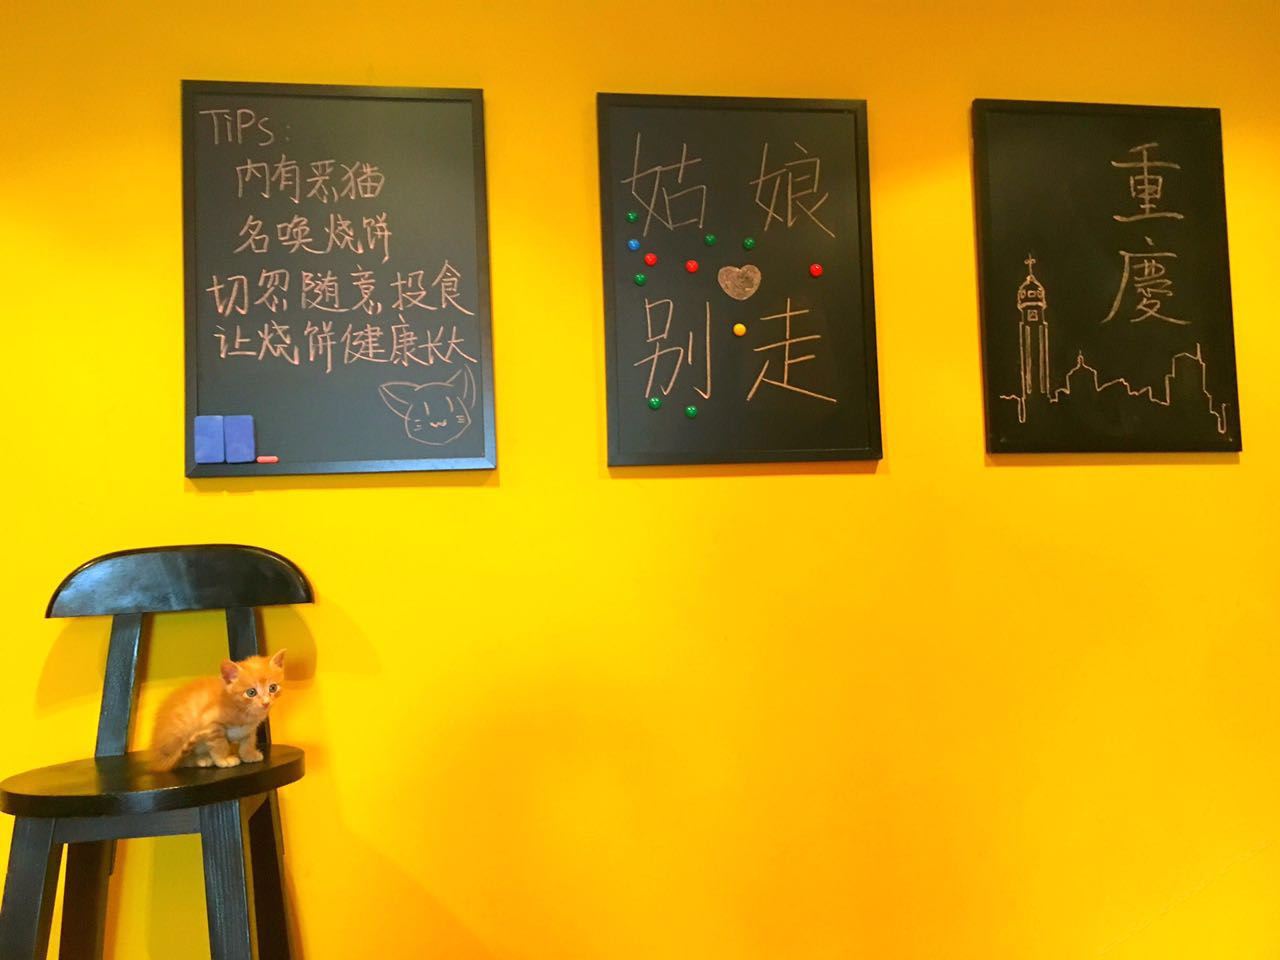 TiPs:
内有恶猫
名唤烧饼
切忽随意投食
让烧饼健康长大
姑娘
别走
重
慶